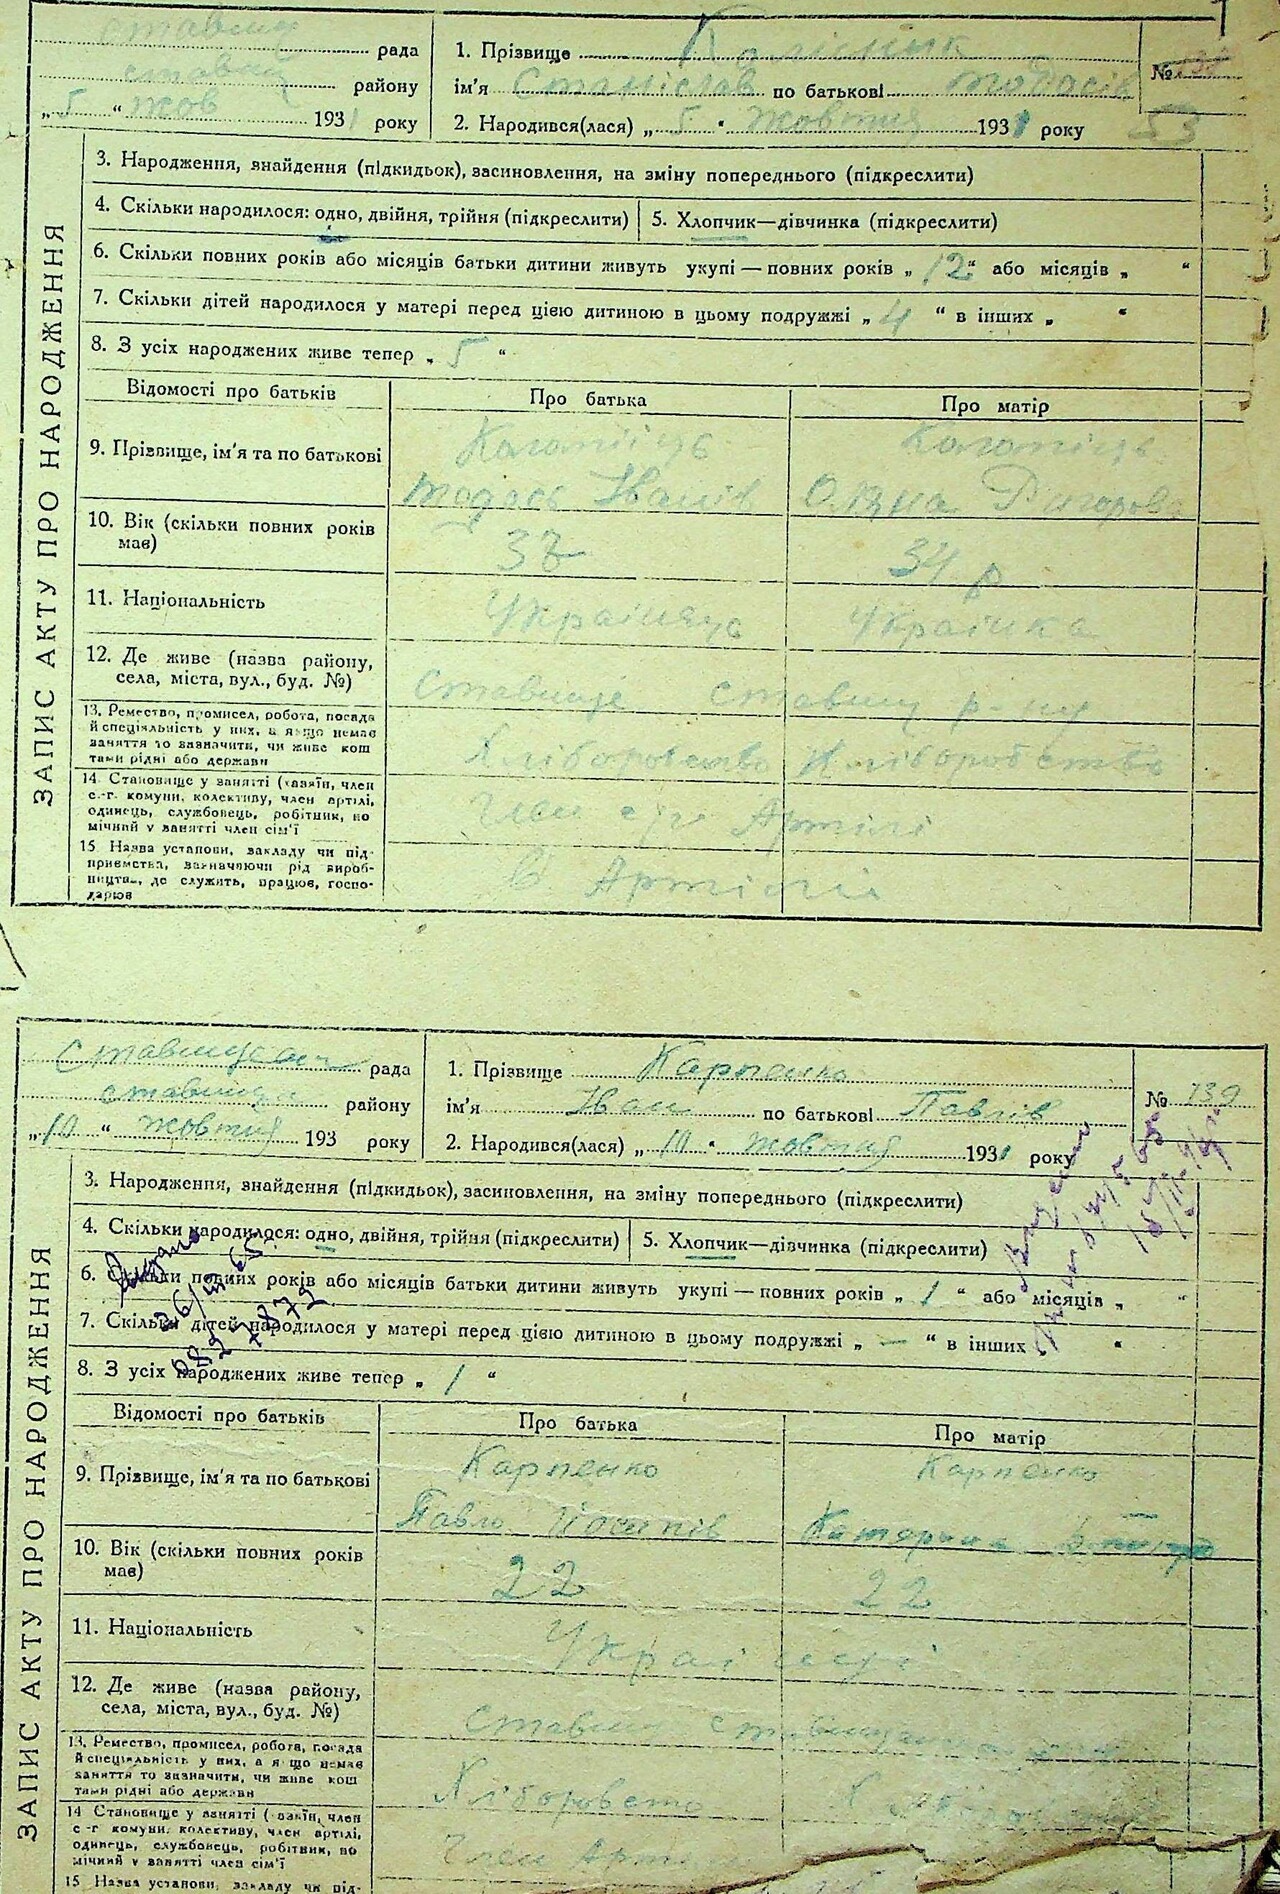 ЗАПИС АКТУ ПРО НАРОДЖЕННЯ
ставищ рада
ставищ району
„5“ жов 1931 року
1. Прізвище
ім'я Станіслав по батькові Тодосів
2. Народився(лася) „5“ жовтня 1931 року
№ 138
53
3. Народження, знайдення (підкидьок), засиновлення, на зміну попереднього (підкреслити)
4. Скільки народилося: одно, двійня, трійня (підкреслити)
5. Хлопчик—дівчинка (підкреслити)
6. Скільки повних років або місяців батьки дитини живуть укупі — повних років „12“ або місяців „ “
7. Скільки дітей народилося у матері перед цією дитиною в цьому подружжі „4“ в інших „ “
8. З усіх народжених живе тепер „5“
Відомості про батьків Про батька Про матір
9. Прізвище, ім'я та по батькові
Коломієць Коломієць
Тодось Іванів Оляна Григоров
10. Вік (скільки повних років має)
37 34 р
11. Національність
Українець Українка
12. Де живе (назва району, села, міста, вул., буд. №)
Ставище Ставищ р-ну
13. Ремество, промисел, робота, посада й спеціяльність у них, а якщо немає заняття то зазначити, чи живе кош тами рідні або держави
Хліборобство Хліборобство
14. Становище у занятті (хазяїн, член с.-г. комуни, колективу, член артілі, одинець, службовець, робітник, по мічний у занятті член сім'ї
Член с/г Артілі
15 Назва установи, закладу чи підприємства, зазначаючи рід виробництва, де служить, працює, господарює
В Артілі
ЗАПИС АКТУ ПРО НАРОДЖЕННЯ
рада
ставищ району
„10“ жовтня 193 року
1. Прізвище Карпенко
ім'я Іван по батькові Павлів
2. Народився(лася) „10“ жовтня 1931 року
№ 139
3. Народження, знайдення (підкидьок), засиновлення, на зміну попереднього (підкреслити)
4. Скільки народилося: одно, двійня, трійня (підкреслити)
5. Хлопчик—дівчинка (підкреслити)
6. Скільки повних років або місяців батьки дитини живуть укупі — повних років „1“ або місяців „ “
7. Скільки дітей народилося у матері перед цією дитиною в цьому подружжі „—“ в інших “
8. З усіх народжених живе тепер „1“
Відомості про батьків Про батька Про матір
9. Прізвище, ім'я та по батькові
Карпенко Карпенко
Павло Йосипів Катерина
10. Вік (скільки повних років має)
22 22
11. Національність
Українці
12. Де живе (назва району, села, міста, вул., буд. №)
Ставищ
13. Ремество, промисел, робота, посада й спеціяльність у них, а якщо немає заняття то зазначити, чи живе кош тами рідні або держави
Хліборобство
14 Становище у занятті (хазяїн, член с.-г комуни, колективу, член артілі, одинець, службовець, робітник, по мічний у занятті член сім'ї
Член Арт
15 Назва установи, закладу чи під-